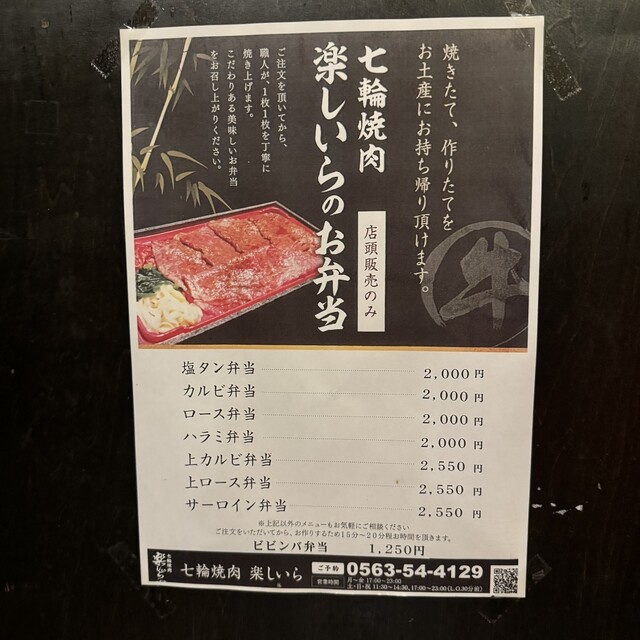 焼きたて、作りたてを
お土産にお持ち帰り頂けます。
牛
七輪焼肉
楽しいらのお弁当
店頭販売のみ
ご注文を頂いてから、
職人が、1枚1枚を丁寧に
焼き上げます。
こだわりある美味しいお弁当
をお召し上がりください。
塩タン弁当 2,000円
カルビ弁当 2,000円
ロース弁当 2,000円
ハラミ弁当 2,000円
上カルビ弁当 2,550円
上ロース弁当 2,550円
サーロイン弁当 2,550円
※上記以外のメニューもお気軽にご相談ください
ご注文をいただいてから、お作りするため15分〜20分程お時間を頂きます。
ビビンバ弁当 1,250円
七輪焼肉
楽しいら
七輪焼肉 楽しいら
ご予約 0563-54-4129
営業時間 月〜金 17:00〜23:00
土・日・祝 11:30〜14:30、17:00〜23:00(L.O.30分前)